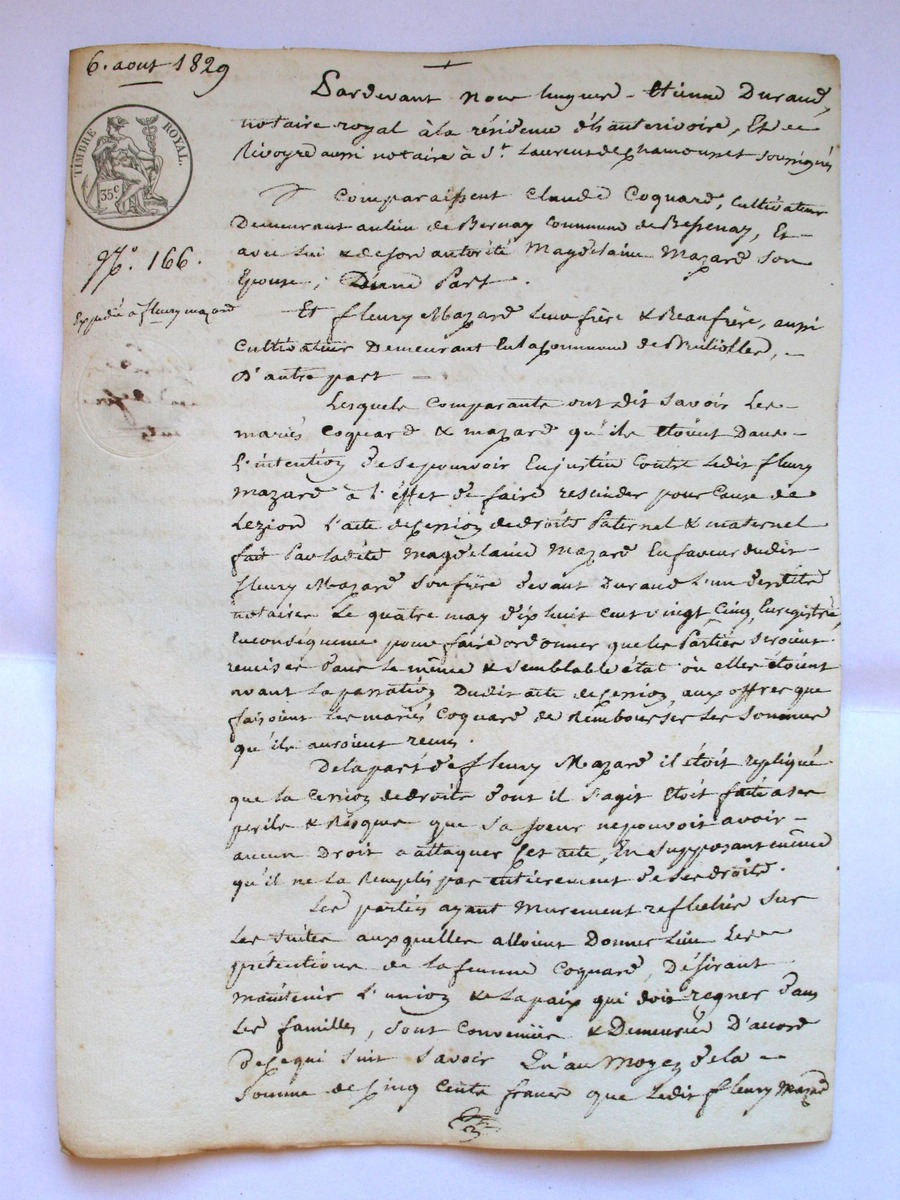 6. aout 1829
TIMBRE ROYAL.
35 c
N.o 166.
Expédié à fleury mazard
Pardevant Nous hugues - Etienne Durand,
notaire royal à la résidence de Ste anterivoire, Et
Rivoyre aussi notaire à St. Laurent de Chamousset soussignés
Comparaissent Claude Coquard, Cultivateur
Demeurant au lieu de Bernay Commune de Bessenay, Et
avec lui & de son autorité Magdelaine Mazard son
Epouse, D'une Part.
Et fleury Mazard leur frère & Beaufrère, aussi
Cultivateur Demeurant En la Commune de Brullioles, -
D'autre part -
Lesquels Comparants ont dit savoir Les -
mariés Coquard & mazard qu'ils Etoient Dans -
L'intention de se pourvoir En justice Contre Ledit fleury
mazard à l'effet de faire rescinder pour Cause de
Lezion L'acte de Cession de droits Paternel & maternel
fait Par Ladite Magdelaine Mazard En faveur dudit -
fleury Mazard son frère devant Durand L'un desdits
notaires Le quatre may dix huit cent vingt Cinq, Enregistré,
En conséquence pour faire ordonner que les Parties seroient
remises Dans Le même & semblable état où elles étoient
avant La passation Dudit acte de Cession, aux offres que
faisoient Les mariés Coquard de Rembourser Les Sommes
qu'ils auroient reçus.
De la part de fleury Mazard il étoit repliqué
que la Cession de droits dont il s'agit Etoit faite a ses
perils & Risques que sa soeur ne pouvoit avoir -
aucun Droit a attaquer Cet acte, En supposant même
qu'il ne La Remplis pas entièrement de Ses droits.
Les parties ayant Murement reflechies sur
Les suites auxquelles alloient Donner Lieu Les
prétentions de la femme Coquard, Désirant
maintenir L'union & La paix qui doit regner Dans
Les familles, sont Convenues & Demeurées D'accord
De Ce qui suit savoir Qu'au Moyen de la -
Somme de Cinq Cents francs que Ledit fleury Mazard